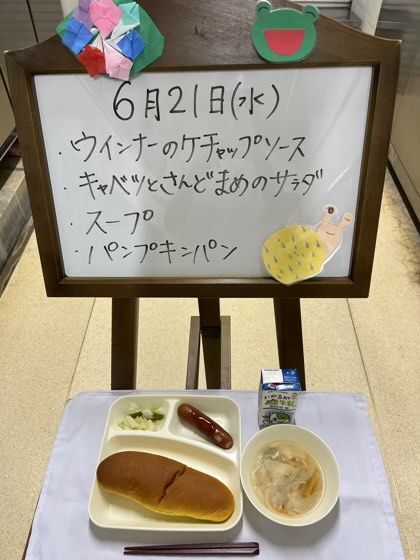 6月21日(水)
・ウインナーのケチャップソース
・キャベツとさんどまめのサラダ
・スープ
・パンプキンパン